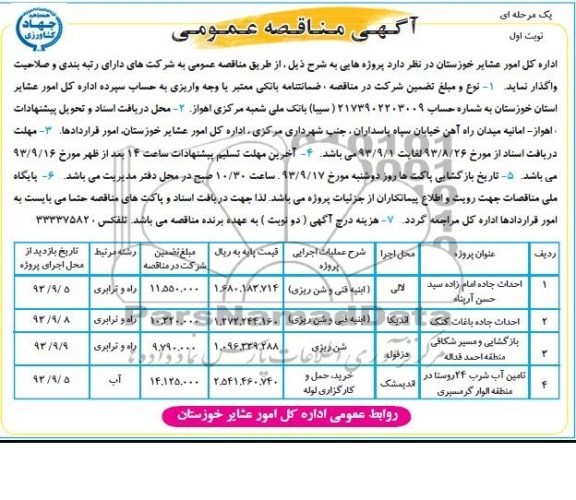 یک مرحله ای
نوبت اول
آگهی مناقصه عمومی
جهاد کشاورزی
اداره کل امور عشایر خوزستان در نظر دارد پروژه هایی به شرح ذیل ، از طریق مناقصه عمومی به شرکت های دارای رتبه بندی و صلاحیت
واگذار نماید. ۱- نوع و مبلغ تضمین شرکت در مناقصه ، ضمانتنامه بانکی معتبر یا وجه واریزی به حساب سپرده اداره کل امور عشایر
استان خوزستان به شماره حساب ۲۱۷۳۹۰۲۲۰۳۰۰۹ ( سیبا) بانک ملی شعبه مرکزی اهواز. ۲- محل دریافت اسناد و تحویل پیشنهادات
، اهواز- امانیه میدان راه آهن خیابان سپاه پاسداران ، جنب شهرداری مرکزی ، اداره کل امور عشایر خوزستان، امور قراردادها. ۳- مهلت
دریافت اسناد از مورخ ۹۳/۸/۲۶ لغایت ۹۳/۹/۱ می باشد. ۴- آخرین مهلت تسلیم پیشنهادات ساعت ۱۴ بعد از ظهر مورخ ۹۳/۹/۱۶
می باشد. ۵- تاریخ بازگشایی پاکت ها روز دوشنبه مورخ ۹۳/۹/۱۷ . ساعت ۱۰/۳۰ صبح در محل دفتر مدیریت می باشد. ۶- پایگاه
ملی مناقصات جهت رویت و اطلاع پیمانکاران از جزئیات پروژه می باشد. لذا جهت دریافت اسناد و پاکت های مناقصه حتما می بایست به
امور قراردادها اداره کل مراجعه گردد. ۷- هزینه درج آگهی ( دو نوبت ) به عهده برنده مناقصه می باشد. تلفکس ۳۳۳۳۷۵۸۲۰
ردیف عنوان پروژه محل اجرا شرح عملیات اجرایی پروژه قیمت پایه به ریال مبلغ تضمین شرکت در مناقصه رشته مرتبط تاریخ بازدید از محل اجرای پروژه
۱ احداث جاده امام زاده سید حسن آرپناه لالی ( ابنیه فنی و شن ریزی) ۱.۶۸۰.۱۸۳.۷۱۴ ۱۱.۵۵۰.۰۰۰ راه و ترابری ۹۳/۹/۵
۲ احداث جاده باغات کتک اندیکا ( ابنیه فنی و شن ریزی) ۱.۲۷۲.۲۴۴.۱۶۰ ۱۰.۳۲۰.۰۰۰ راه و ترابری ۹۳/۹/۸
۳ بازگشایی و مسیر شکافی منطقه احمد فداله دزفول شن ریزی ۱.۰۹۶.۳۳۹.۲۸۸ ۹.۷۹۰.۰۰۰ راه و ترابری ۹۳/۹/۹
۴ تامین آب شرب ۲۴روستا در منطقه الوار گرمسیری اندیمشک خرید، حمل و کارگزاری لوله ۲.۵۴۱.۴۶۰.۷۴۰ ۱۴.۱۲۵.۰۰۰ آب ۹۳/۹/۵
ParsNamadData
روابط عمومی اداره کل امور عشایر خوزستان